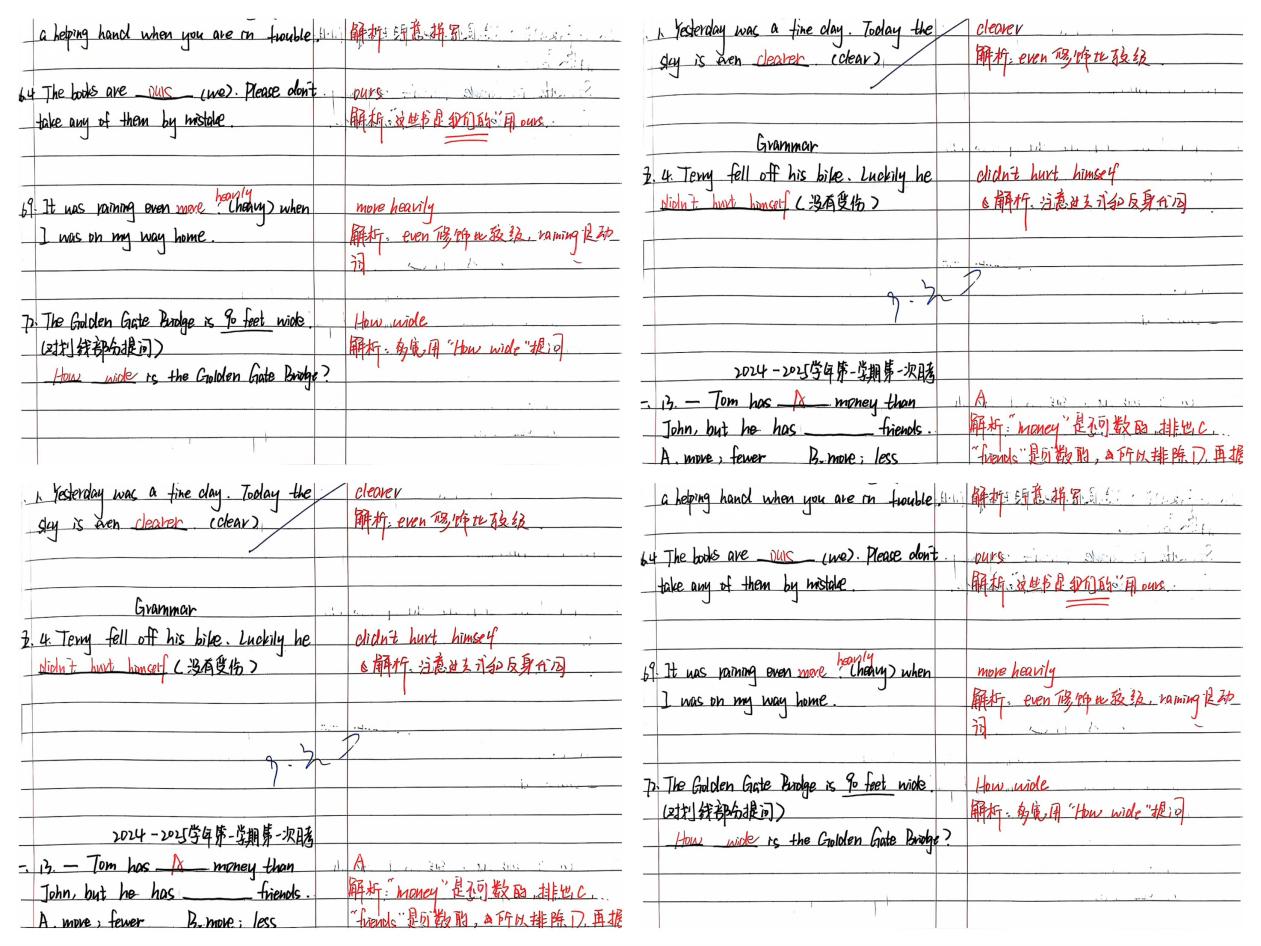 a helping hand when you are in trouble. 解析: 注意拼写
64 The books are ours (we). Please don't ours
take any of them by mistake. 解析:"这些书是我们的"用ours.
heavily
69. It was raining even more (heavy) when more heavily
I was on my way home. 解析: even 修饰比较级, raining是动
词
72. The Golden Gate Bridge is 90 feet wide. How wide
(对划线部分提问) 解析: 多宽用"How wide"提问
How wide is the Golden Gate Bridge?
1. Yesterday was a fine day. Today the clearer
sky is even clearer (clear) 解析: even修饰比较级
Grammar
五. 4. Terry fell off his bike. Luckily he didn't hurt himself
didn't hurt himself (没有受伤) 解析: 注意过去式和反身代词
2024-2025学年第一学期第一次月考
二. 13. — Tom has A money than A
John, but he has ______ friends. 解析:"money"是不可数的,排他C.
A. more; fewer B. more; less "friends"是可数的,所以排除D,再据
1. Yesterday was a fine day. Today the clearer
sky is even clearer (clear) 解析: even修饰比较级
Grammar
五. 4. Terry fell off his bike. Luckily he didn't hurt himself
didn't hurt himself (没有受伤) 解析: 注意过去式和反身代词
2024-2025学年第一学期第一次月考
二. 13. — Tom has A money than A
John, but he has ______ friends. 解析:"money"是不可数的,排他C.
A. more; fewer B. more; less "friends"是可数的,所以排除D,再据
a helping hand when you are in trouble. 解析: 注意拼写
64 The books are ours (we). Please don't ours
take any of them by mistake. 解析:"这些书是我们的"用ours.
heavily
69. It was raining even more (heavy) when more heavily
I was on my way home. 解析: even 修饰比较级, raining是动
词
72. The Golden Gate Bridge is 90 feet wide. How wide
(对划线部分提问) 解析: 多宽用"How wide"提问
How wide is the Golden Gate Bridge?